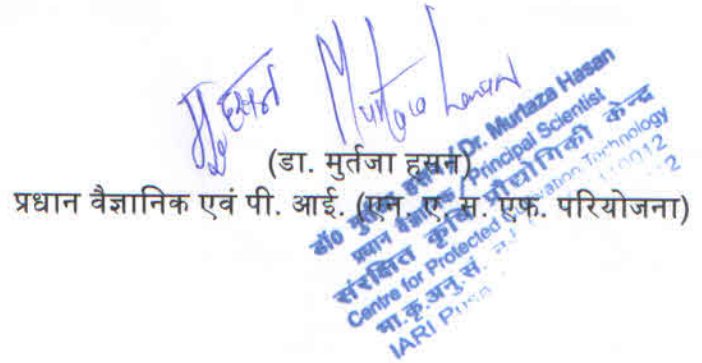 मु. हसन Murtaza Hasan
(डा. मुर्तजा हसन)
प्रधान वैज्ञानिक एवं पी. आई. (एन. ए. स. एफ. परियोजना)
डॉ० मुर्तजा हसन / Dr. Murtaza Hasan
प्रधान वैज्ञानिक / Principal Scientist
संरक्षित कृषि प्रौद्योगिकी केन्द्र
Centre for Protected Cultivation Technology
भा.कृ.अनु.सं.
IARI Pusa